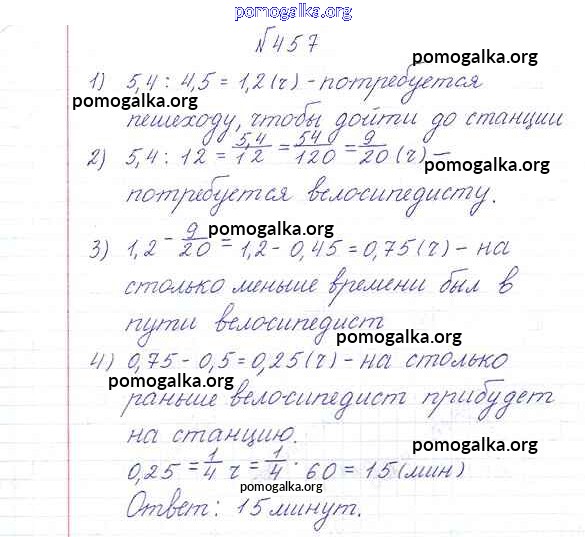 pomogalka.org
№457
pomogalka.org
1) 5,4 : 4,5 = 1,2 (ч) - потребуется
pomogalka.org
пешеходу, чтобы дойти до станции
2) 5,4 : 12 = 5,4/12 = 54/120 = 9/20 (ч) -
pomogalka.org
потребуется велосипедисту.
pomogalka.org
3) 1,2 - 9/20 = 1,2 - 0,45 = 0,75 (ч) - на
столько меньше времени был в
пути велосипедист
pomogalka.org
4) 0,75 - 0,5 = 0,25 (ч) - на столько
pomogalka.org
раньше велосипедист прибудет
на станцию.
pomogalka.org
0,25 = 1/4 ч = 1/4 · 60 = 15 (мин)
pomogalka.org
Ответ: 15 минут.
pomogalka.org